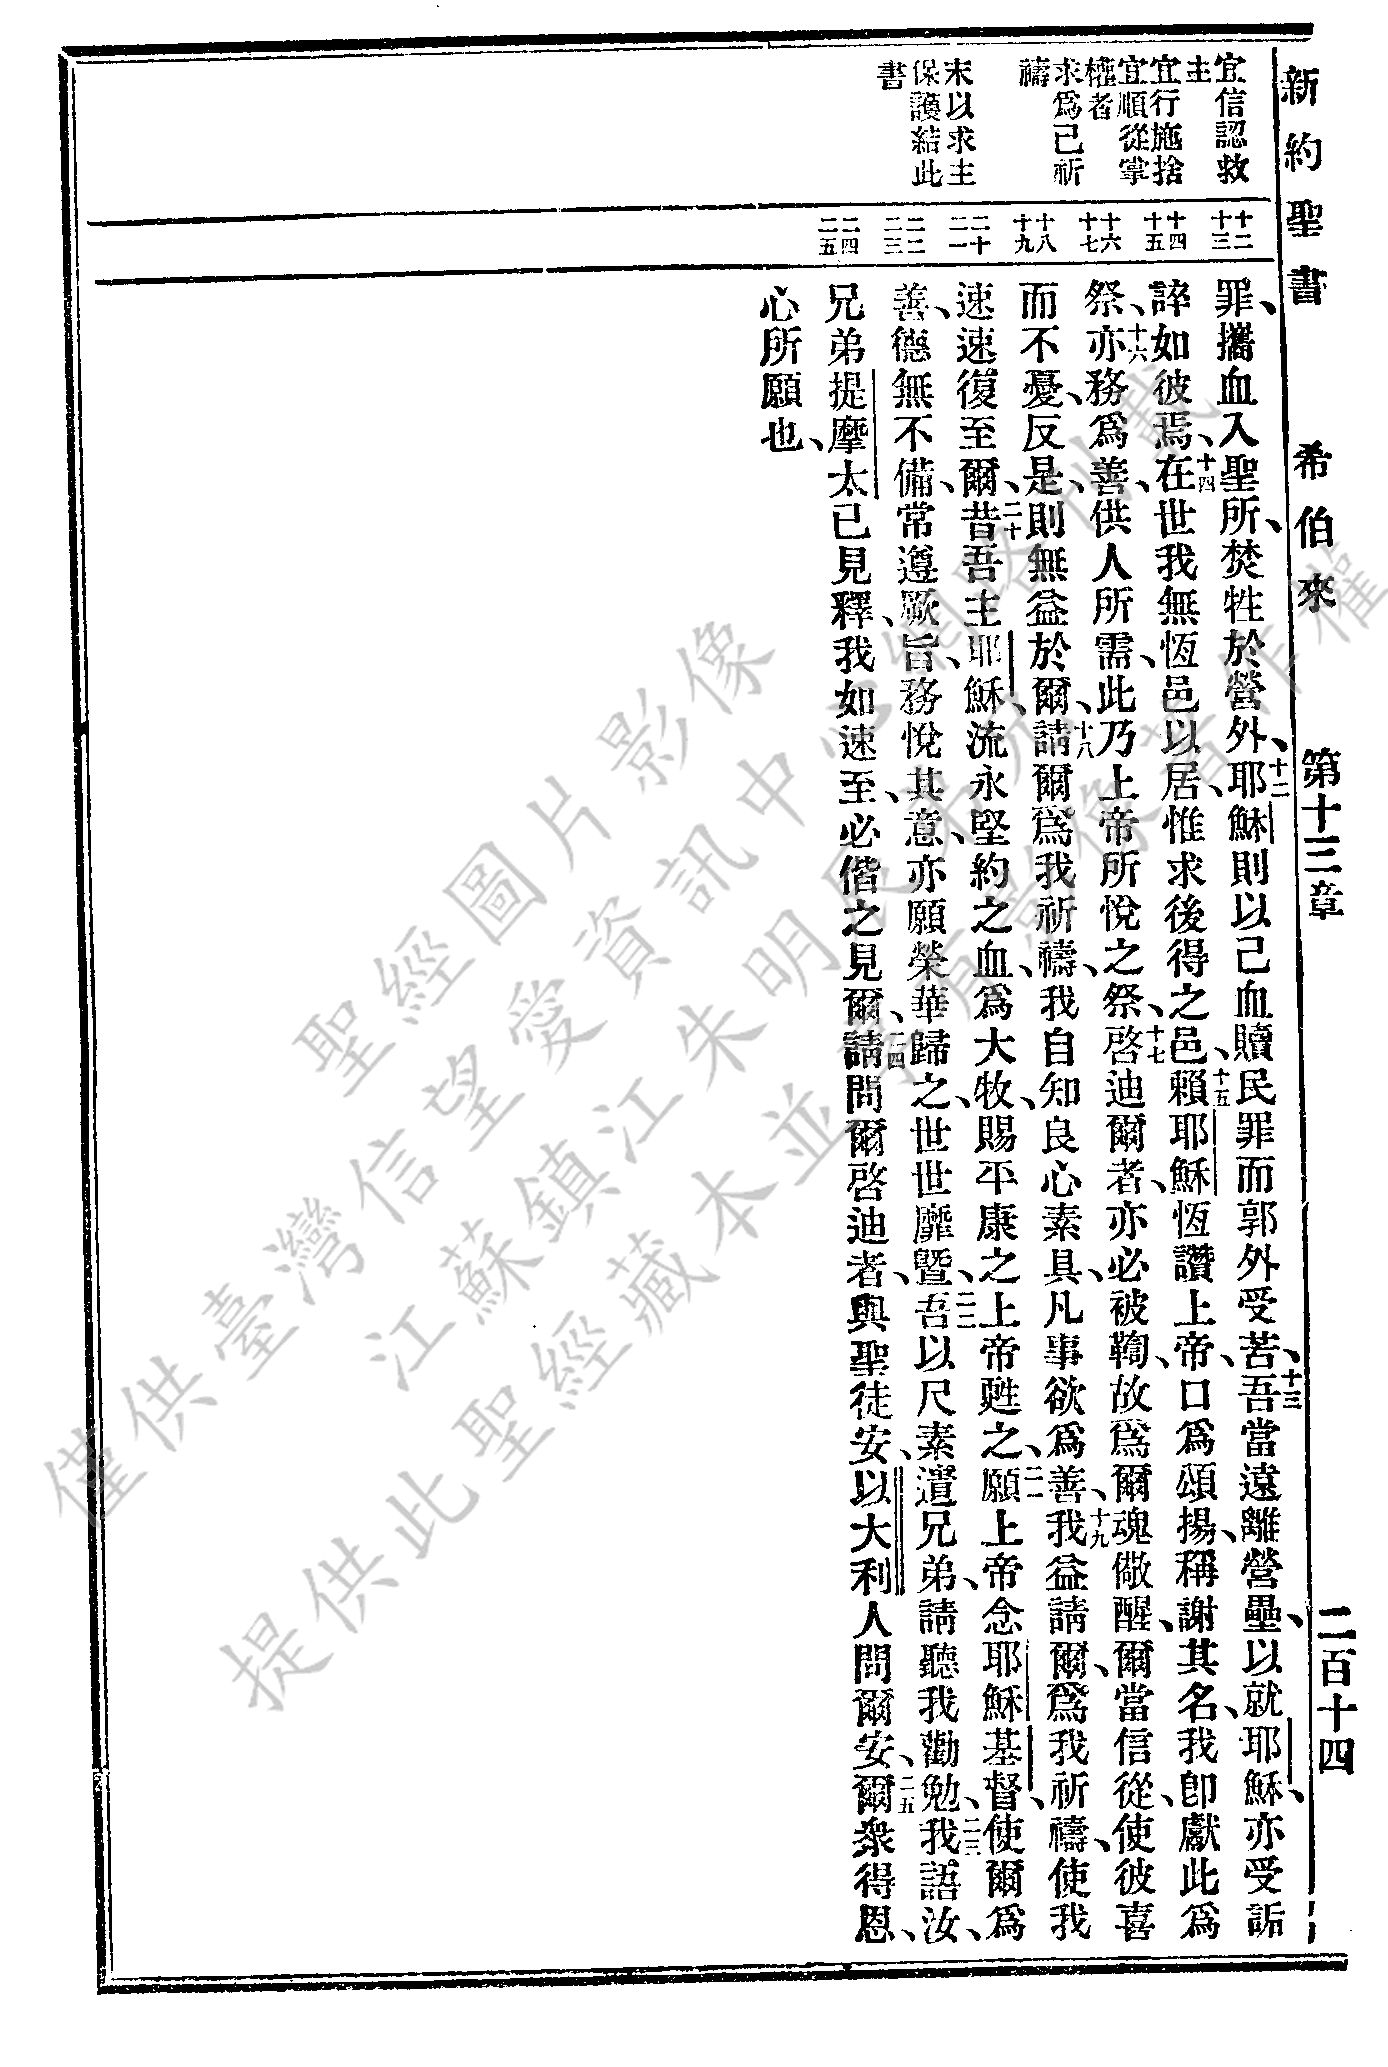 新約聖書 希伯來 第十三章 二百十四
宜信認救
主
宜行施捨
宜順從掌
權者
求爲己祈
禱
末以求主
保護結此
書
十二
十三
十四
十五
十六
十七
十八
十九
二十
二一
二二
二三
二四
二五
罪、攜血入聖所、焚牲於營外、十二耶穌則以己血贖民罪而郭外受苦、十三吾當遠離營壘、以就耶穌、亦受詬
誶如彼焉、十四在世我無恆邑以居、惟求後得之邑、十五賴耶穌恆讚上帝、口爲頌揚、稱謝其名、我卽獻此爲
祭、十六亦務爲善、供人所需、此乃上帝所悅之祭、十七啓迪爾者、亦必被鞫、故爲爾魂儆醒、爾當信從、使彼喜
而不憂、反是、則無益於爾、十八請爾爲我祈禱、我自知良心素具、凡事欲爲善、十九我益請爾、爲我祈禱、使我
速速復至爾、二十昔吾主耶穌、流永堅約之血、爲大牧、賜平康之上帝甦之、二一願上帝念耶穌基督、使爾爲
善、德無不備、常遵厥旨、務悅其意、亦願榮華歸之、世世靡曁、二二吾以尺素遣兄弟、請聽我勸勉、二三我語汝、
兄弟提摩太已見釋、我如速至、必偕之見爾、二四請問爾啓迪者、與聖徒安、以大利人問爾安、二五爾衆得恩、
心所願也、
僅供臺灣信望愛資訊中心網路刊載
聖經圖片影像
江蘇鎮江朱明民弟兄
提供此聖經藏本並享有影像著作權